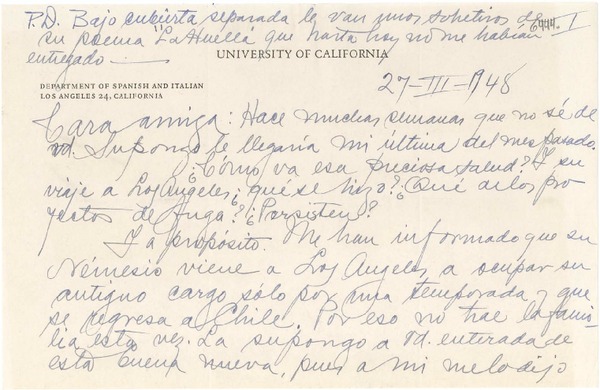 P.D. Bajo cubierta separada le van unos sobretiros de
su poema "La Huella" que hasta hoy no me habían
entregado
I
UNIVERSITY OF CALIFORNIA
DEPARTMENT OF SPANISH AND ITALIAN
LOS ANGELES 24, CALIFORNIA
27-III-1948
Cara amiga: Hace muchas semanas que no sé de
Vd. Supongo le llegaría mi última del mes pasado.
¿Cómo va esa preciosa salud? Y su
viaje a Los Angeles, ¿qué se hizo? ¿Qué de los pro
yectos de fuga? ¿Persisten?
Y a propósito. Me han informado que su
Némesio viene a Los Angeles a ocupar su
antiguo cargo sólo por una temporada y que
se regresa a Chile. Por eso no trae la fami
lia esta vez. La supongo a Vd. enterada de
esta buena nueva, pues a mí me lo dijo